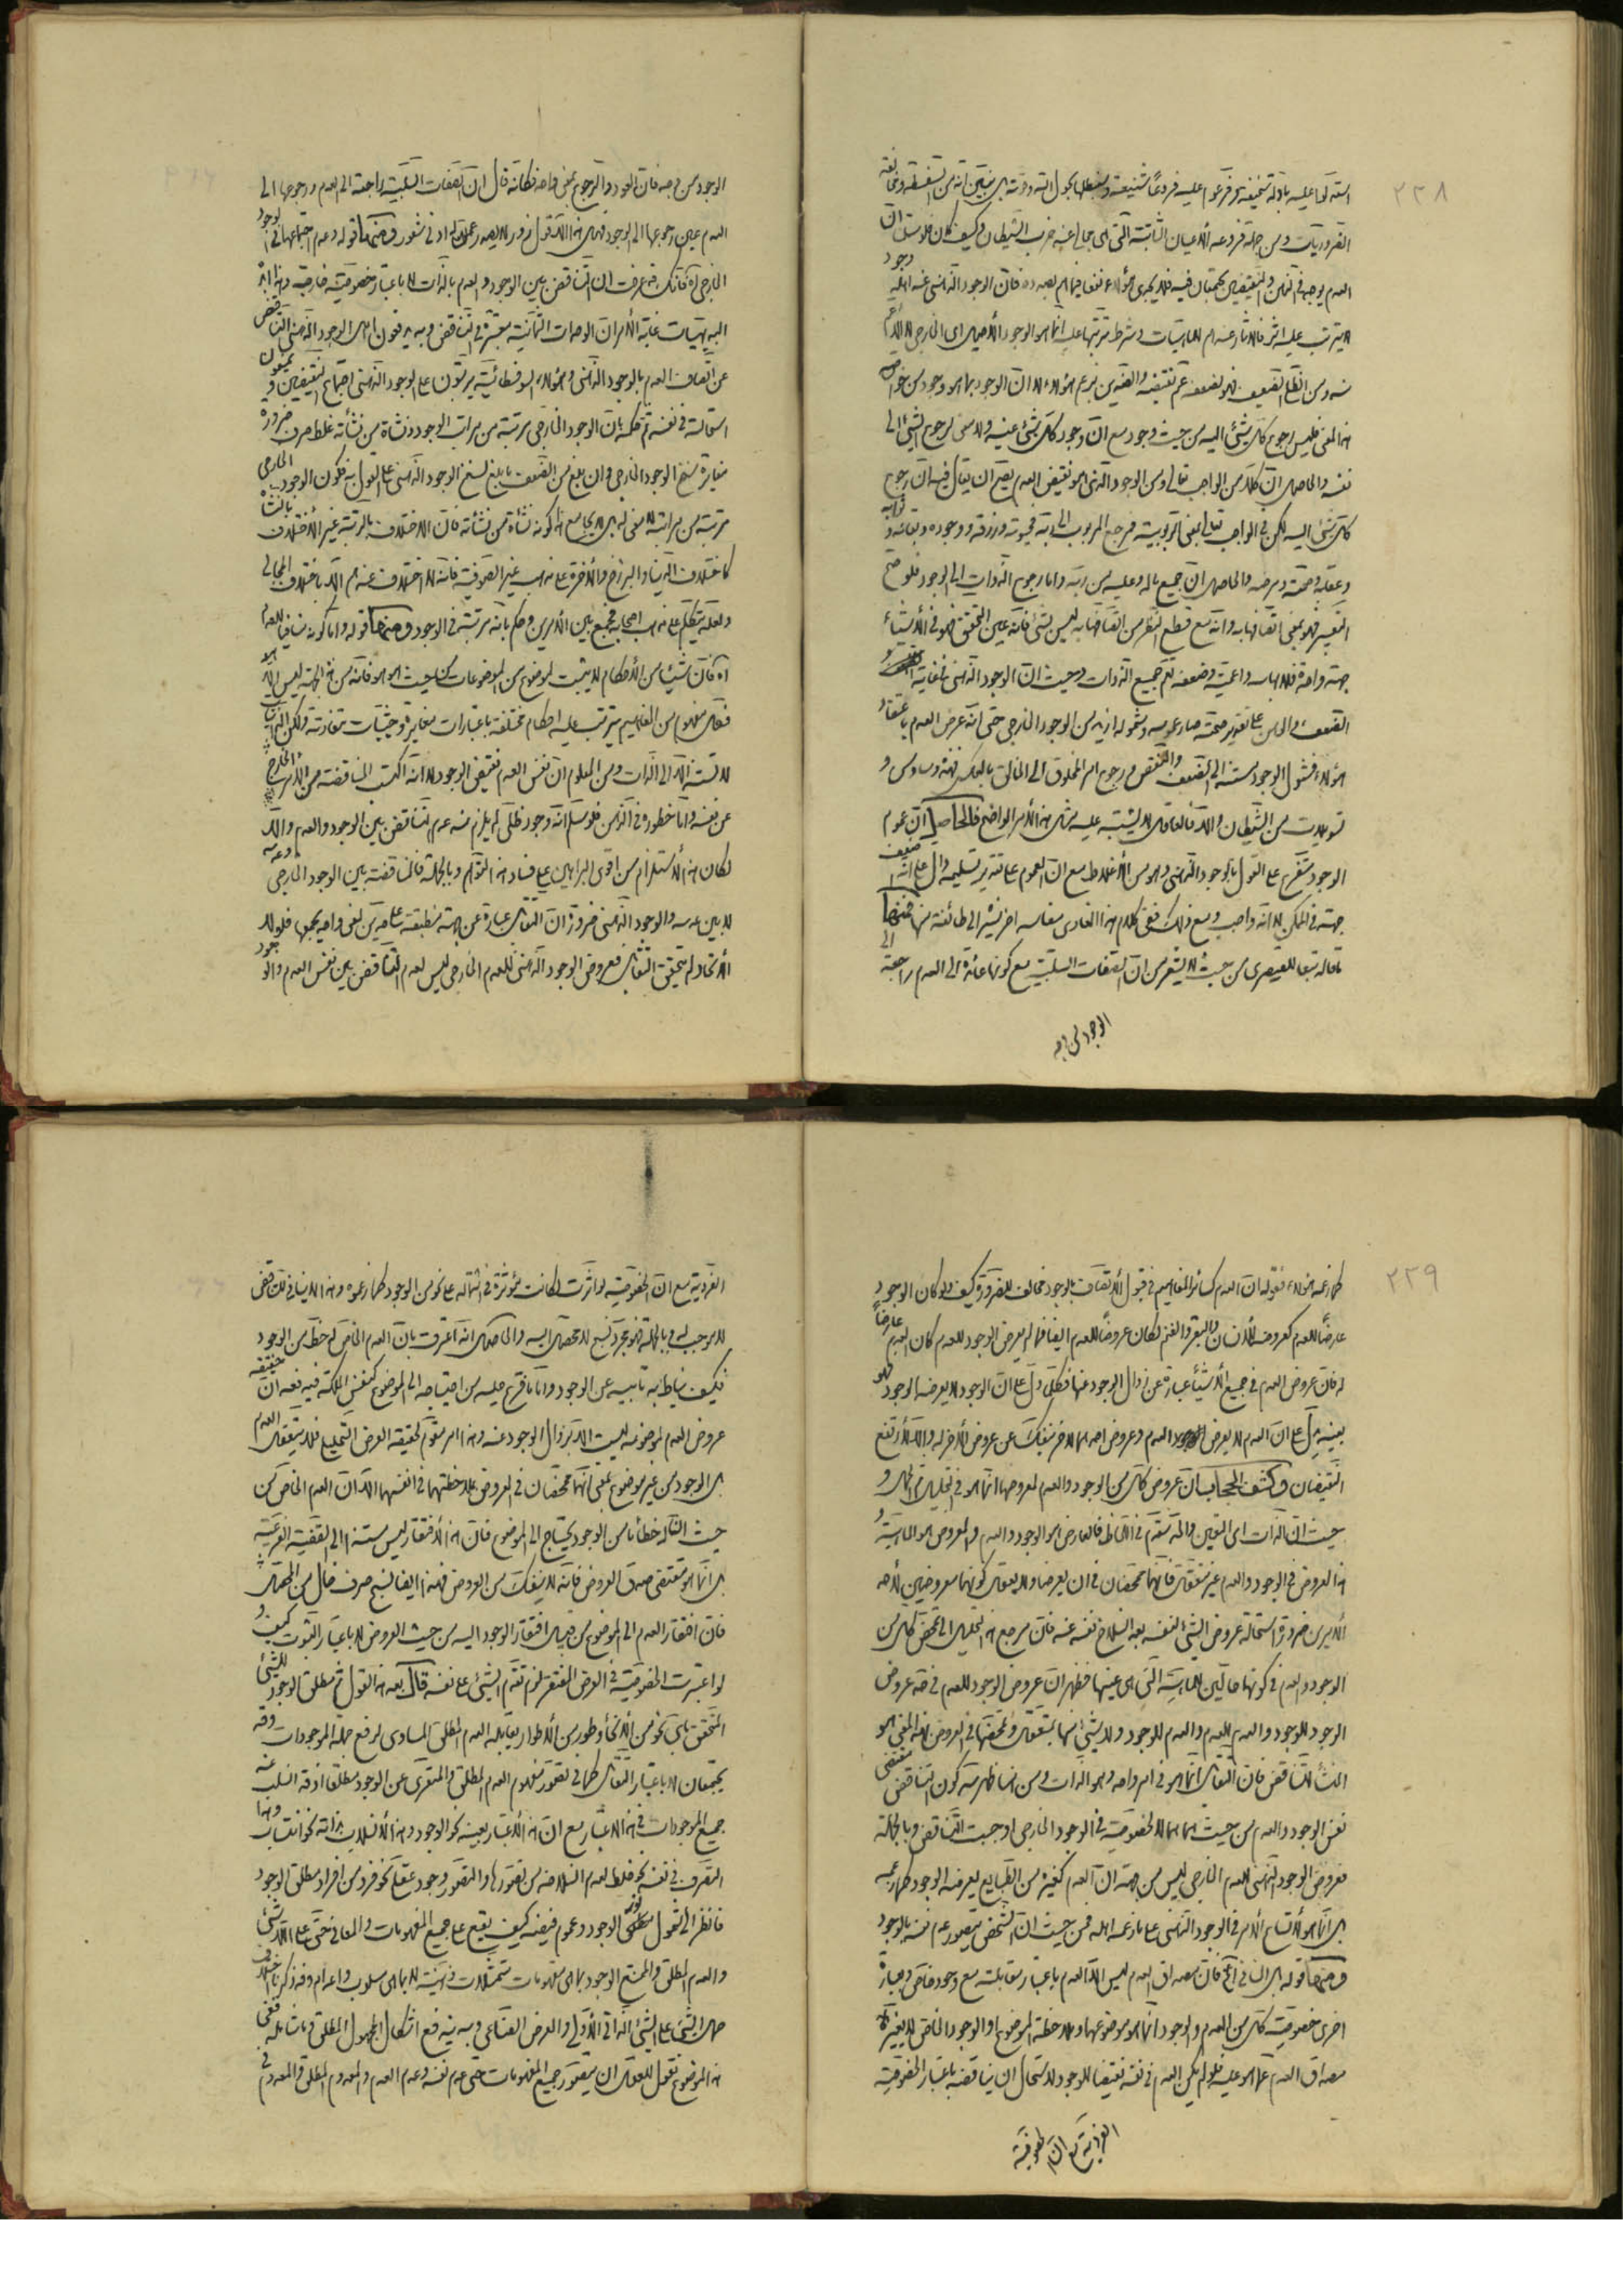 ٢٢٨
الضروريات ومن جملة فروعه الأعيان الثابتة التي هي
العدم يوجد في الذهن والنقيضين يجتمعان فيه فلا يجدي هؤلاء نفعا فيما هم بصدده فان الوجود الذهني عند اهله
لا يترتب عليه اثر فالآثار عندهم للماهيات وشرط ترتبها عليه انما هو الوجود الأصيل اى الخارجي
هذا المعنى فليس رجوع كل شيء اليه من حيث وجوده مع ان وجود كل شيء عينه ولا معنى لرجوع الشيء الى
نفسه والحاصل ان كلا من الواجب تعالى ومن الوجود الذي هو نقيض العدم يصح ان يقال فيه ان رجوع
كل شيء اليه لكن في الواجب تعالى بمعنى الربوبية فمرجع المربوب الى ربه فحيوته ورزقه ووجوده وبقائه و
وعقله وصحته ومرضه والحاصل ان جميع ماله وعليه من ربه واما رجوع الذوات الى الوجود فلو صح
التعبير فهو بمعنى اتصافها به وانه مع قطع النظر عن اتصافها به ليس بشيء فانه عين التحقق فهو في الأشياء
جهة واحدة
الضعف
هؤلاء فشمول الوجود مستند الى الضعف والنقص ورجوع امر المخلوق الى الخالق بالعكس فهذه وساوس و
تسويلات من الشيطان والا فالعاقل لا يشتبه عليه مثل هذا الأمر الواضح فالحاصل ان عموم
الوجود متفرع على القول بالوجود الذهني وهو من الأغلاط مع ان العموم على تقدير تسليمه دال على انه
جهة في الممكن لا انه واجب ومع ذلك ففي كلام هذا القائل مفاسد اخر نشير الى طائفة منها فمنها
ما قاله تبعا للقيصري من حيث لا يشعر من ان الصفات السلبية مع كونها عائدة الى العدم راجعة الى
الوجود من وجه
الوجود من وجه فان العود والرجوع بمعنى واحد فكانه قال ان الصفات السلبية راجعة الى العدم ورجوعها الى
العدم عين رجوعها الى الوجود فهل هذا الا قول زور لا يصدر عمن له ادنى شعور ومنها قوله وعدم اجتماعهما في الوجود
الخارجي آه فانك قد عرفت ان التناقض بين الوجود والعدم بالذات لا باعتبار خصوصية خارجية وهذا من
البديهيات غاية الأمر ان الوحدات الثمانية معتبرة في التناقض وبه يرتفعون
عن اتصاف العدم بالوجود الذهني وهؤلاء السوفسطائية يرتبون على الوجود الذهني اجتماع النقيضين و
استحالته في نفسه ثم حكمه بان الوجود الخارجي مرتبة من مراتب الوجود ونشأة من نشأته غلط صرف ضرورة
مغايرة سنخ الوجود الخارجي وان بلغ من الضعف ما بلغ لسنخ الوجود الذهني على القول به فكون الوجود الخارجي
مرتبة من مراتبه لا معنى له بل لا يجامع هذا كونه نشأة من نشأته فان الاختلاف بالرتبة غير الأختلاف بالنشأة
كاختلاف الدنيا والبرزخ والآخرة على مذهب غير الصوفية فانه لا اختلاف عندهم الا باختلاف المجالي
ولعله يتكلم على مذهب اصحابه فجمع بين الأمرين وحكم بانه مرتبة في الوجود ومنها قوله واما كونه منافيا للعدم
آه فان شيئا من الأحكام لا يثبت لموضوع من الموضوعات من حيث هو هو فانه من هذا الجهة ليس الا هو
فكل مفهوم من المفاهيم يترتب عليه احكام مختلفة باعتبارات متغايرة وحيثيات متفاوتة
لا تستند الا الى الذات ومن المعلوم ان نفس العدم نقيض الوجود لا انه اكتسب المناقضة من الأمر الخارج
عن نفسه واما خطوره في الذهن فلو سلم انه وجود ظلي لم يلزم منه عدم التناقض بين الوجود والعدم والا
لكان هذا الأستلزام من اقوى البراهين على فساد هذا التوهم وبالجملة فالمناقضة بين الوجود الخارجي وعدمه
لا بين عدمه والوجود الذهني ضرورة ان التقابل عبارة عن جهة منطبقة على امرين لمعنى واحد يجمعها فلولا
الأتحاد لم يتحقق التقابل فعروض الوجود الذهني للعدم الخارجي ليس لعدم التناقض بين نفس العدم والوجود
٢٢٩
كما زعمه هؤلاء فقوله ان العدم كسائر المفاهيم في قبول الأتصاف بالوجود مخالف للضرورة كيف ولو كان الوجود
عارضا للعدم كعروضه للأنسان والبقر والغنم لكان عروضا للعدم ايضا فما لم يعرض الوجود للعدم كان العدم عارضا
له فان عروض العدم في جميع الأشياء عبارة عن زوال الوجود عنها فكل ما دل على ان الوجود لا يعرضه الوجود فهو
بعينه يدل على ان العدم لا يعرض العدم وعروض احدهما لا ينفك عن عروض الآخر له والا لأرتفع
النقيضان وكشف الحجاب ان عروض كل من الوجود والعدم لمعروضها انما هو في التحليل
حيث ان الذات اى التعين والماهية متقدم في اللحاظ فالعارض هو الوجود والعدم والمعروض هو الماهية و
هذا العروض في الوجود والعدم غير متعقل فانهما متمحضان في ان يعرضا ولا يعقل كونهما معروضين لأحد
الأمرين ضرورة استحالة عروض الشيء لنفسه بعد انسلاخ نفسه عنه فان مرجع هذا التحليل الى تمحض كل من
الوجود والعدم في كونهما حالين للماهية التي هي عينها فظهر ان عروض الوجود للعدم في حد عروض
الوجود للوجود والعدم للعدم والعدم للوجود ولا شيء منها بمتعقل وتمحضهما في العروض لهذا المعنى هو
المنشأ للتناقض فان التقابل انما هو في امر واحد وهو الذات ومن هنا ظهر سر كون التناقض مقتضى
نفس الوجود والعدم من حيث هما هما لا لخصوصية في الوجود الخارجي اوجبت التناقض وبالجملة
فعروض الوجود الذهني للعدم الخارجي ليس من جهة ان العدم كغيره من الطبايع يعرضه الوجود كما زعمه
بل انما هو لأتساع الأمر في الوجود الذهني على ما زعمه اهله فمن حيث ان الشخص يتصور عدم نفسه بالوجود
ومنها قوله بل المنافي آه فان مصداق العدم ليس الا العدم باعتبار مقابلته مع وجود خاص وبعبارة
اخرى خصوصية كل من العدم والوجود انما هو بموضوعها وملاحظة الموضوع او الوجود الخاص لا يغير
مصداق العدم عما هو عليه فلو لم يكن العدم في نفسه نقيضا للوجود لاستحال ان يناقضه باعتبار الخصوصية
الفردية مع ان الخصوصية
الفردية مع ان الخصوصية لو اثرت لكانت مؤثرة في اشتماله على نحو من الوجود كما زعموه وهذا لا ينافي التناقض
لا يوجبه وبالجملة فهو مجرد نسج لا محصل اليه والحاصل انه اعترف بان العدم الخاص له حظ من الوجود
فكيف يناط به تأبيه عن الوجود واما ما فرع عليه من احتياجه الى الموضوع كنفس الملكة ففيه ان حقيقة
عروض العدم لموضوعه ليست الا بزوال الوجود عنه وهذا امر مقوم لحقيقة العرض التحليلي فلا يتعقل العدم
بل الوجود من غير موضوع بمعنى انهما متمحضان في العروض بملاحظتهما في انفسهما الا ان العدم الخاص من
حيث ان له حظا ما من الوجود يحتاج الى الموضوع فان هذا الأفتقار ليس مستندا الى القضية الفرعية
بل انما هو مقتضى صدق العروض فانه لا ينفك من العروض فهذا ايضا نسج صرف خال من المحصل
فان افتقار العدم الى الموضوع من قبيل افتقار الوجود اليه من حيث العروض لا باعتبار الثبوت كيف و
لو اعتبرت الخصوصية في العرض المفتقر لزم تقدم الشيء على نفسه قال بعد هذا القول ثم مطلق الوجود للشيء
المتحقق باي نحو من الأنحاء وطور من الأطوار يقابله العدم المطلق المساوى لرفع جملة الموجودات وقد
يجتمعان لا باعتبار التقابل كما في تصور مفهوم العدم المطلق والمتعرى عن الوجود مطلقا اذ قد انسلب عنه
جميع الموجودات في هذا الاعتبار مع ان هذا الأعتبار بعينه نحو الوجود وهذا الأنسلاب بذاته نحو انتساب وهذا
التعرى في نفسه نحو خلط لعدم انسلاخه من تصورها والتصور وجود عقلى نحو فرد من افراد مطلق الوجود
فانظر الى شمول نور الوجود وعموم فيضه كيف يقع على جميع المفهومات والمعاني حتى على اللاشيء
والعدم المطلق والممتنع الوجود بما هي مفهومات متمثلات ذهنية لا بما هي سلوب واعدام وقد ذكرنا اختلاف
حمل الشيء على الشيء بالذاتي الأولى والعرض الصناعي وبه يندفع اشكال المجهول المطلق وما شابهه ففي
هذا الموضوع نقول للعقل ان يتصور جميع المفهومات حتى عدم نفسه وعدم العدم والمعدوم المطلق والمعدوم في